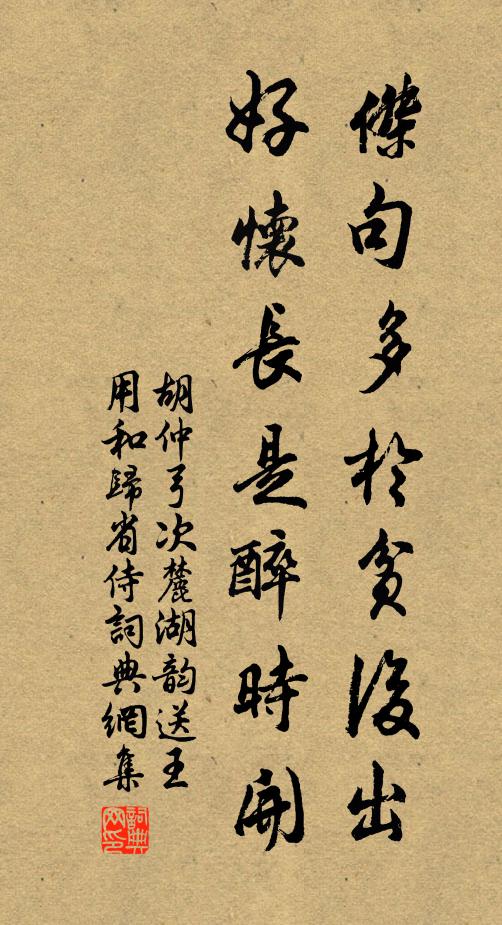 傑句多於貧後出
好懷長是醉時開
胡仲弓次麓湖韵送王
用和歸省侍詞典網集
詞典網印